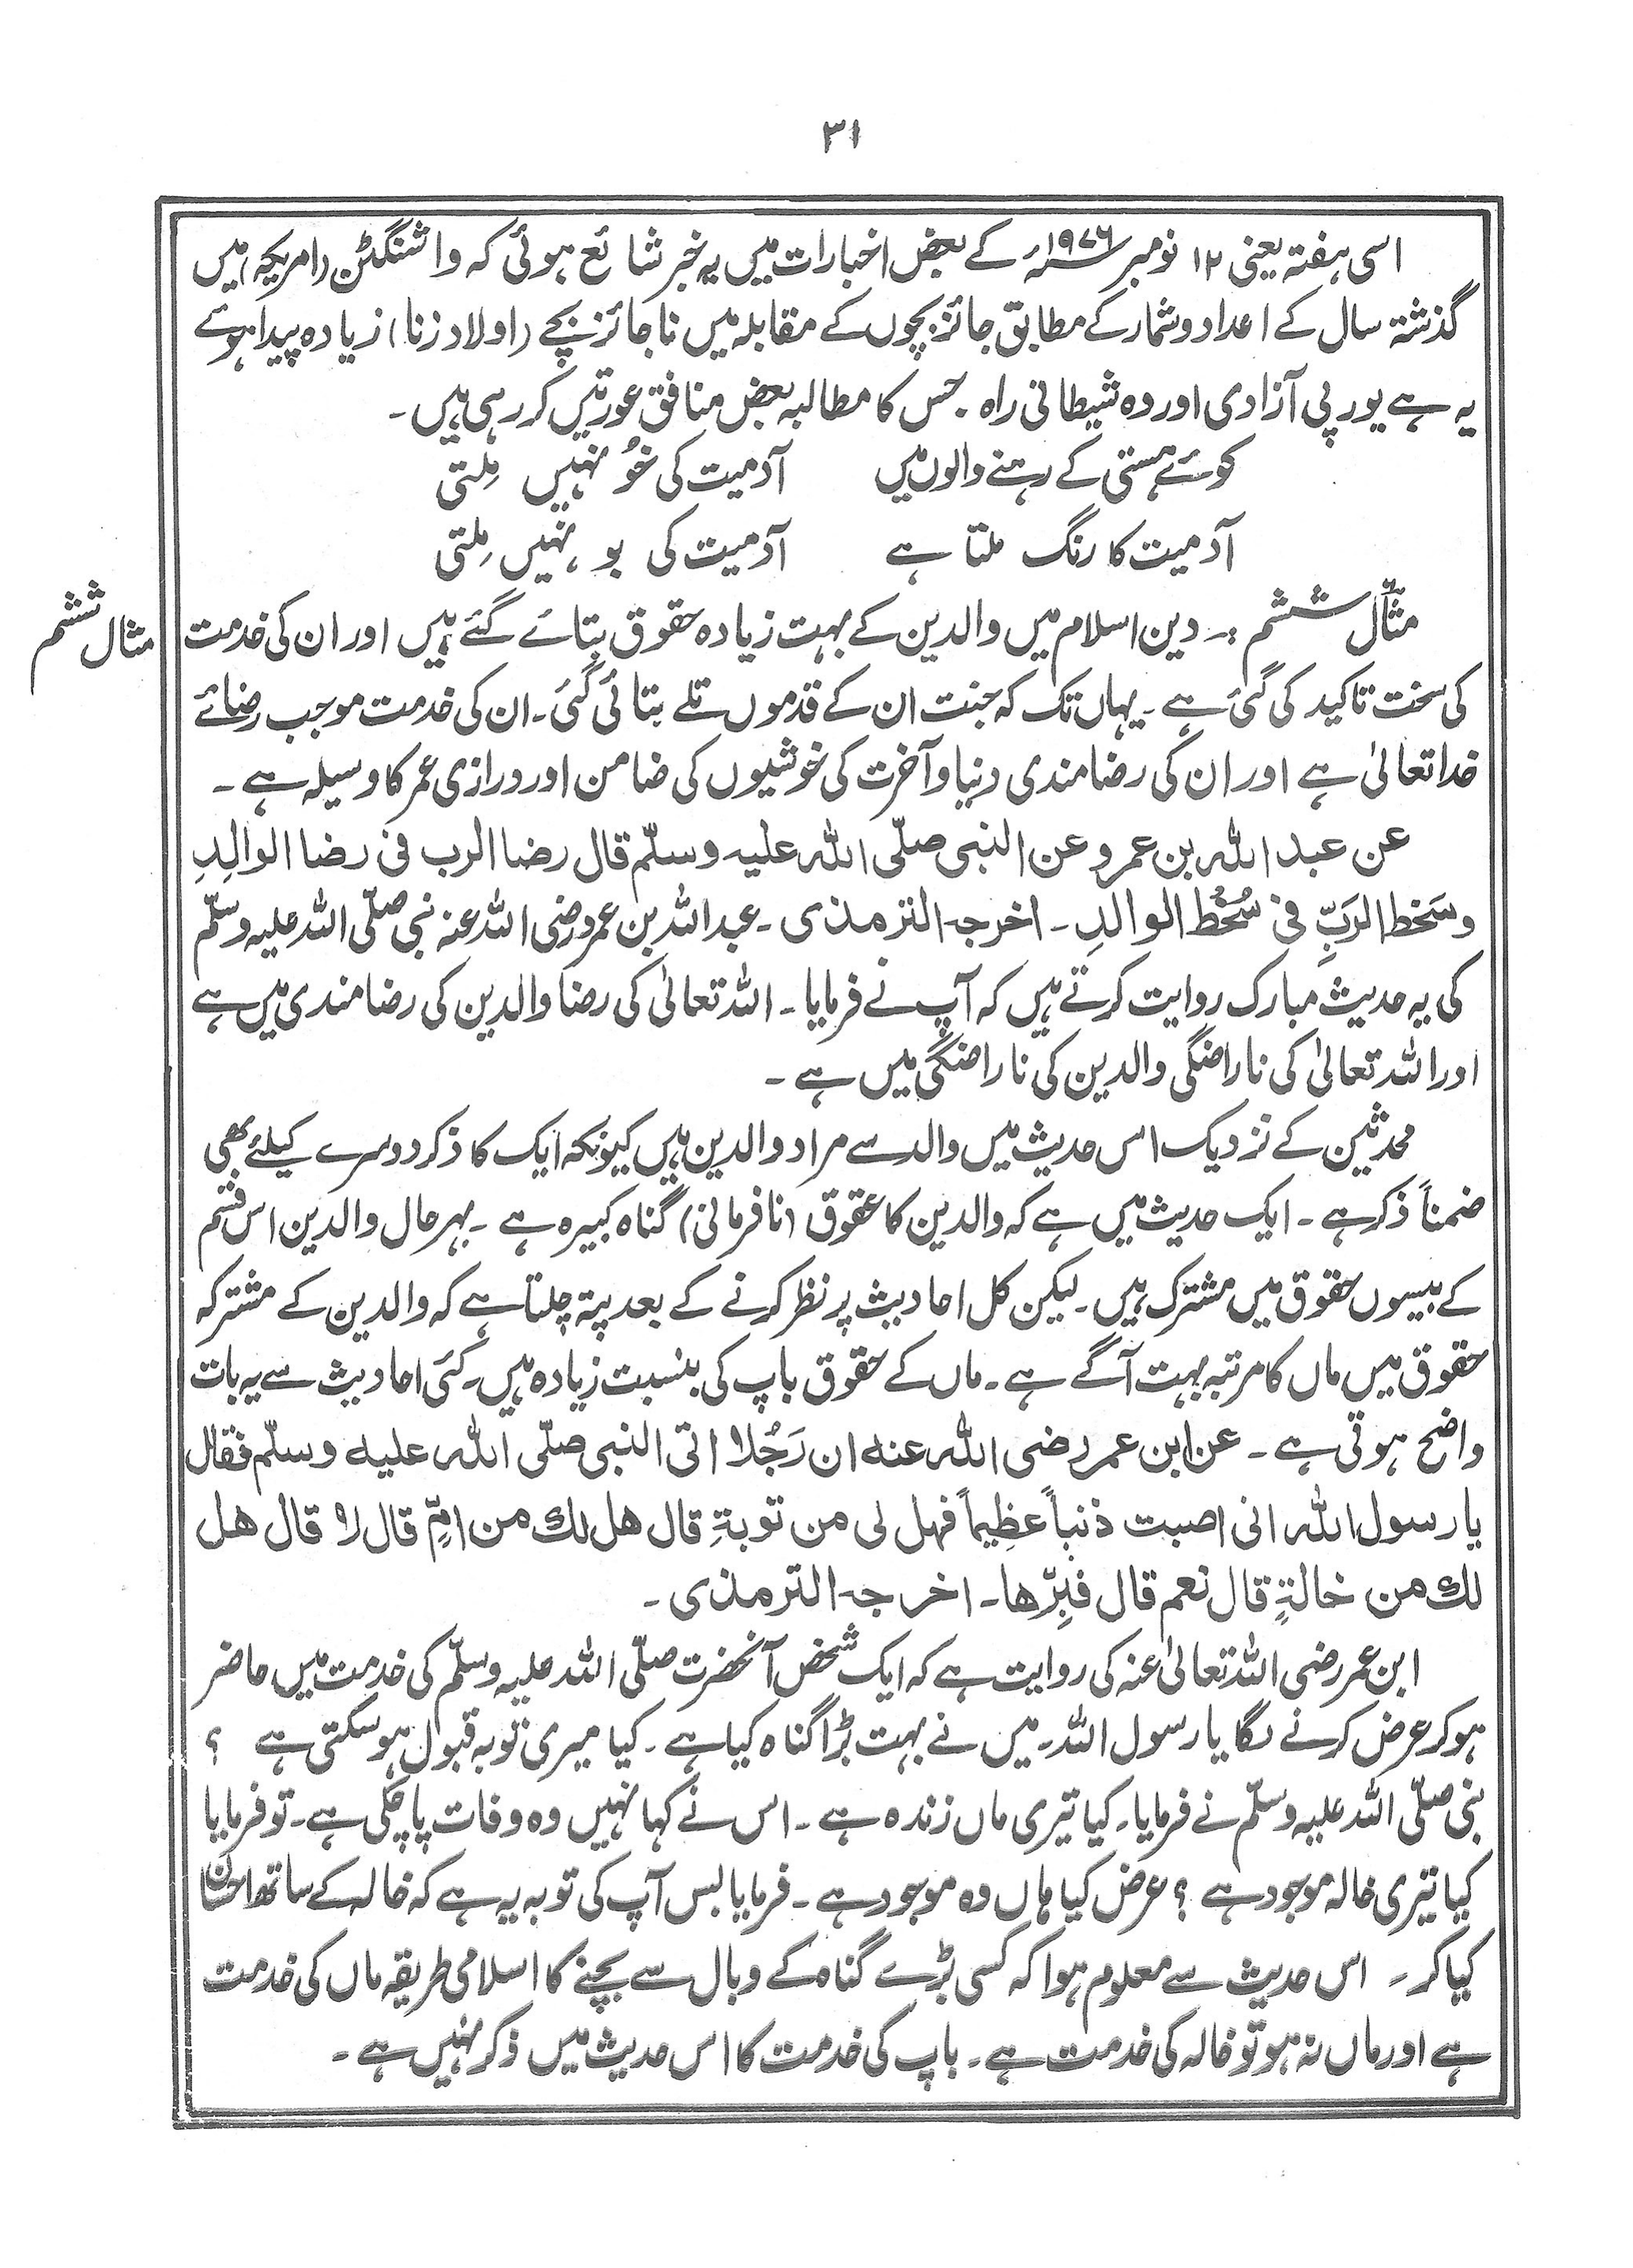 ۳۱
اسی ہفتہ یعنی ۱۲ نومبر ۱۹۷۶ء کے بعض اخبارات میں یہ خبر شائع ہوئی کہ واشنگٹن (امریکہ) میں
گذشتہ سال کے اعداد و شمار کے مطابق جائز بچوں کے مقابلہ میں ناجائز بچے (اولاد زنا) زیادہ پیدا ہوئے
یہ ہے یورپی آزادی اور وہ شیطانی راہ. جس کا مطالبہ بعض منافق عورتیں کر رہی ہیں۔
کوئے ہستی کے رہنے والوں میں آدمیت کی خُو نہیں مِلتی
آدمیت کا رنگ ملتا ہے آدمیت کی بو نہیں مِلتی
مثال ششم
مثال ششم :۔ دین اسلام میں والدین کے بہت زیادہ حقوق بتائے گئے ہیں اور ان کی خدمت
کی سخت تاکید کی گئی ہے۔ یہاں تک کہ جنت ان کے قدموں تلے بتائی گئی۔ ان کی خدمت موجب رضائے
خدا تعالیٰ ہے اور ان کی رضامندی دنیا و آخرت کی خوشیوں کی ضامن اور درازی عمر کا وسیلہ ہے۔
عن عبد اللہ بن عمرو عن النبی صلّی اللہ علیہ وسلّم قال رضا الرب فی رضا الوالِدِ
وسَخط الرَبِّ فی سُخْط الوالدِ۔ اخرجہ الترمذی۔ عبداللہ بن عمرو رضی اللہ عنہ نبی صلّی اللہ علیہ وسلّم
کی یہ حدیث مبارک روایت کرتے ہیں کہ آپ نے فرمایا۔ اللہ تعالیٰ کی رضا والدین کی رضامندی میں ہے
اور اللہ تعالیٰ کی ناراضگی والدین کی ناراضگی میں ہے۔
محدثین کے نزدیک اس حدیث میں والد سے مراد والدین ہیں کیونکہ ایک کا ذکر دوسرے کیلئے بھی
ضمناً ذکر ہے۔ ایک حدیث میں ہے کہ والدین کا عقوق (نافرمانی) گناہ کبیرہ ہے۔ بہرحال والدین اس قسم
کے بیسوں حقوق میں مشترک ہیں۔ لیکن کل احادیث پر نظر کرنے کے بعد پتہ چلتا ہے کہ والدین کے مشترکہ
حقوق میں ماں کا مرتبہ بہت آگے ہے۔ ماں کے حقوق باپ کی بنسبت زیادہ ہیں۔ کئی احادیث سے یہ بات
واضح ہوتی ہے۔ عن ابن عمر رضی اللہ عنہ ان رَجُلا اتی النبی صلّی اللہ علیہ وسلّم فقال
یا رسول اللہ انی اصبت ذنباً عظِیماً فہل لی من توبۃٍ قال ھل لك من امٍّ قال لا قال ھل
لك من خالۃٍ قال نعم قال فبِرَّھا۔ اخرجہ الترمذی۔
ابن عمر رضی اللہ تعالیٰ عنہ کی روایت ہے کہ ایک شخص آنحضرت صلّی اللہ علیہ وسلّم کی خدمت میں حاضر
ہو کر عرض کرنے لگا یا رسول اللہ۔ میں نے بہت بڑا گناہ کیا ہے۔ کیا میری توبہ قبول ہو سکتی ہے ؟
نبی صلّی اللہ علیہ وسلّم نے فرمایا۔ کیا تیری ماں زندہ ہے۔ اس نے کہا نہیں وہ وفات پا چکی ہے۔ تو فرمایا
کیا تیری خالہ موجود ہے ؟ عرض کیا ہاں وہ موجود ہے۔ فرمایا بس آپ کی توبہ یہ ہے کہ خالہ کے ساتھ احسان
کیا کر۔ اس حدیث سے معلوم ہوا کہ کسی بڑے گناہ کے وبال سے بچنے کا اسلامی طریقہ ماں کی خدمت
ہے اور ماں نہ ہو تو خالہ کی خدمت ہے۔ باپ کی خدمت کا اس حدیث میں ذکر نہیں ہے۔